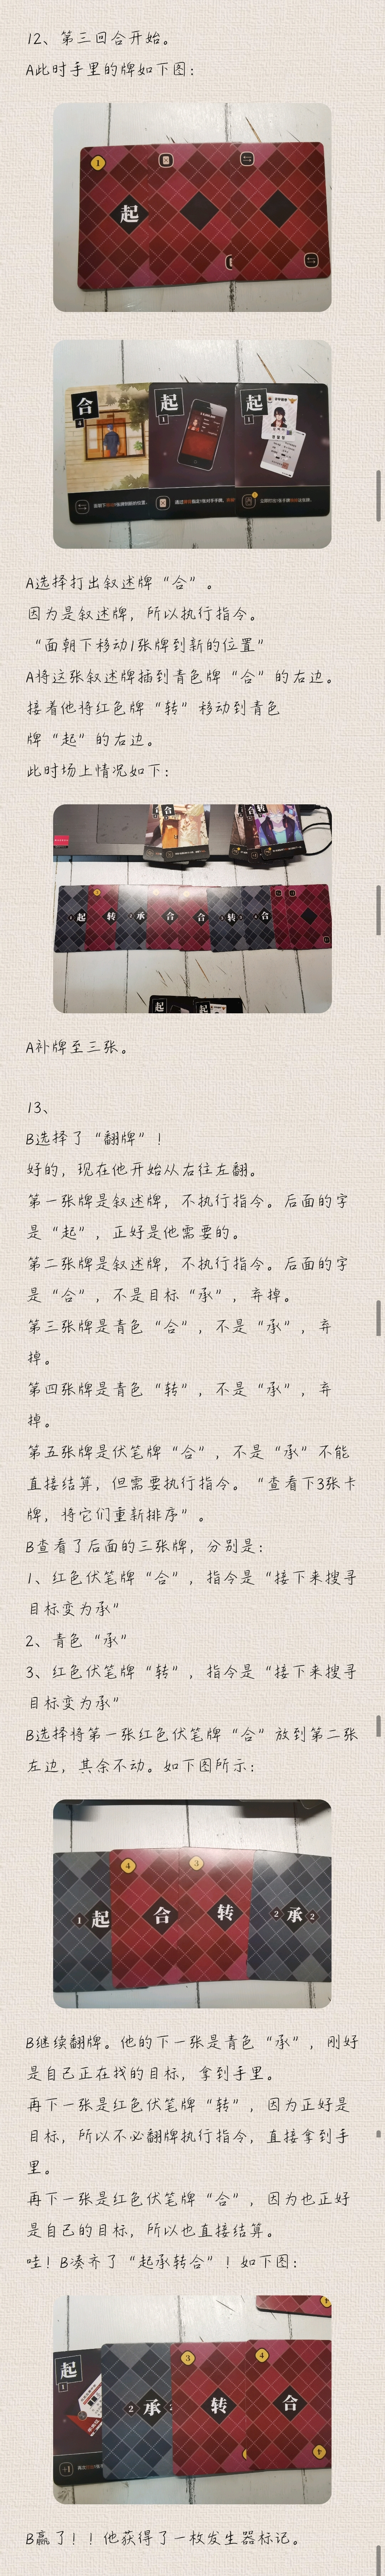 12、第三回合开始。
A此时手里的牌如下图：
1
起
合
4
起
1
起
1
A选择打出叙述牌“合”。
因为是叙述牌，所以执行指令。
“面朝下移动1张牌到新的位置”
A将这张叙述牌插到青色牌“合”的右边。
接着他将红色牌“转”移动到青色
牌“起”的右边。
此时场上情况如下：
起 转 承 合 合 转 合
起
A补牌至三张。
13、
B选择了“翻牌”！
好的，现在他开始从右往左翻。
第一张牌是叙述牌，不执行指令。后面的字
是“起”，正好是他需要的。
第二张牌是叙述牌，不执行指令。后面的字
是“合”，不是目标“承”，弃掉。
第三张牌是青色“合”，不是“承”，弃
掉。
第四张牌是青色“转”，不是“承”，弃
掉。
第五张牌是伏笔牌“合”，不是“承”不能
直接结算，但需要执行指令。“查看下3张卡
牌，将它们重新排序”。
B查看了后面的三张牌，分别是：
1、红色伏笔牌“合”，指令是“接下来搜寻
目标变为承”
2、青色“承”
3、红色伏笔牌“转”，指令是“接下来搜寻
目标变为承”
B选择将第一张红色伏笔牌“合”放到第二张
左边，其余不动。如下图所示：
4 3
1 起 合 转 2 承 2
B继续翻牌。他的下一张是青色“承”，刚好
是自己正在找的目标，拿到手里。
再下一张是红色伏笔牌“转”，因为正好是
目标，所以不必翻牌执行指令，直接拿到手
里。
再下一张是红色伏笔牌“合”，因为也正好
是自己的目标，所以也直接结算。
哇！B凑齐了“起承转合”！如下图：
起
1
3 4
2 承 2 转 合
+1
4
B赢了！！他获得了一枚发生器标记。